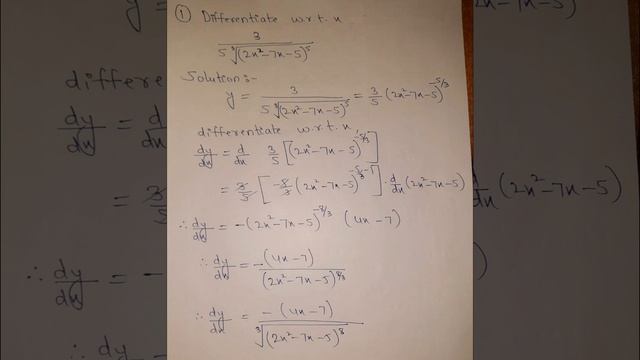 ① Differentiate w.r.t. x
3 / 5 ∛(2x²-7x-5)⁵
Solution:-
y = 3 / 5 ∛(2x²-7x-5)⁵ = 3/5 (2x²-7x-5)^-5/3
differentiate w.r.t. x,
dy/dx = d/dx 3/5 [(2x²-7x-5)^-5/3]
= 3/5 [-5/3 (2x²-7x-5)^-5/3-1] . d/dx (2x²-7x-5)
∴ dy/dx = -(2x²-7x-5)^-8/3 (4x-7)
∴ dy/dx = -(4x-7) / (2x²-7x-5)^8/3
∴ dy/dx = -(4x-7) / ∛(2x²-7x-5)⁸